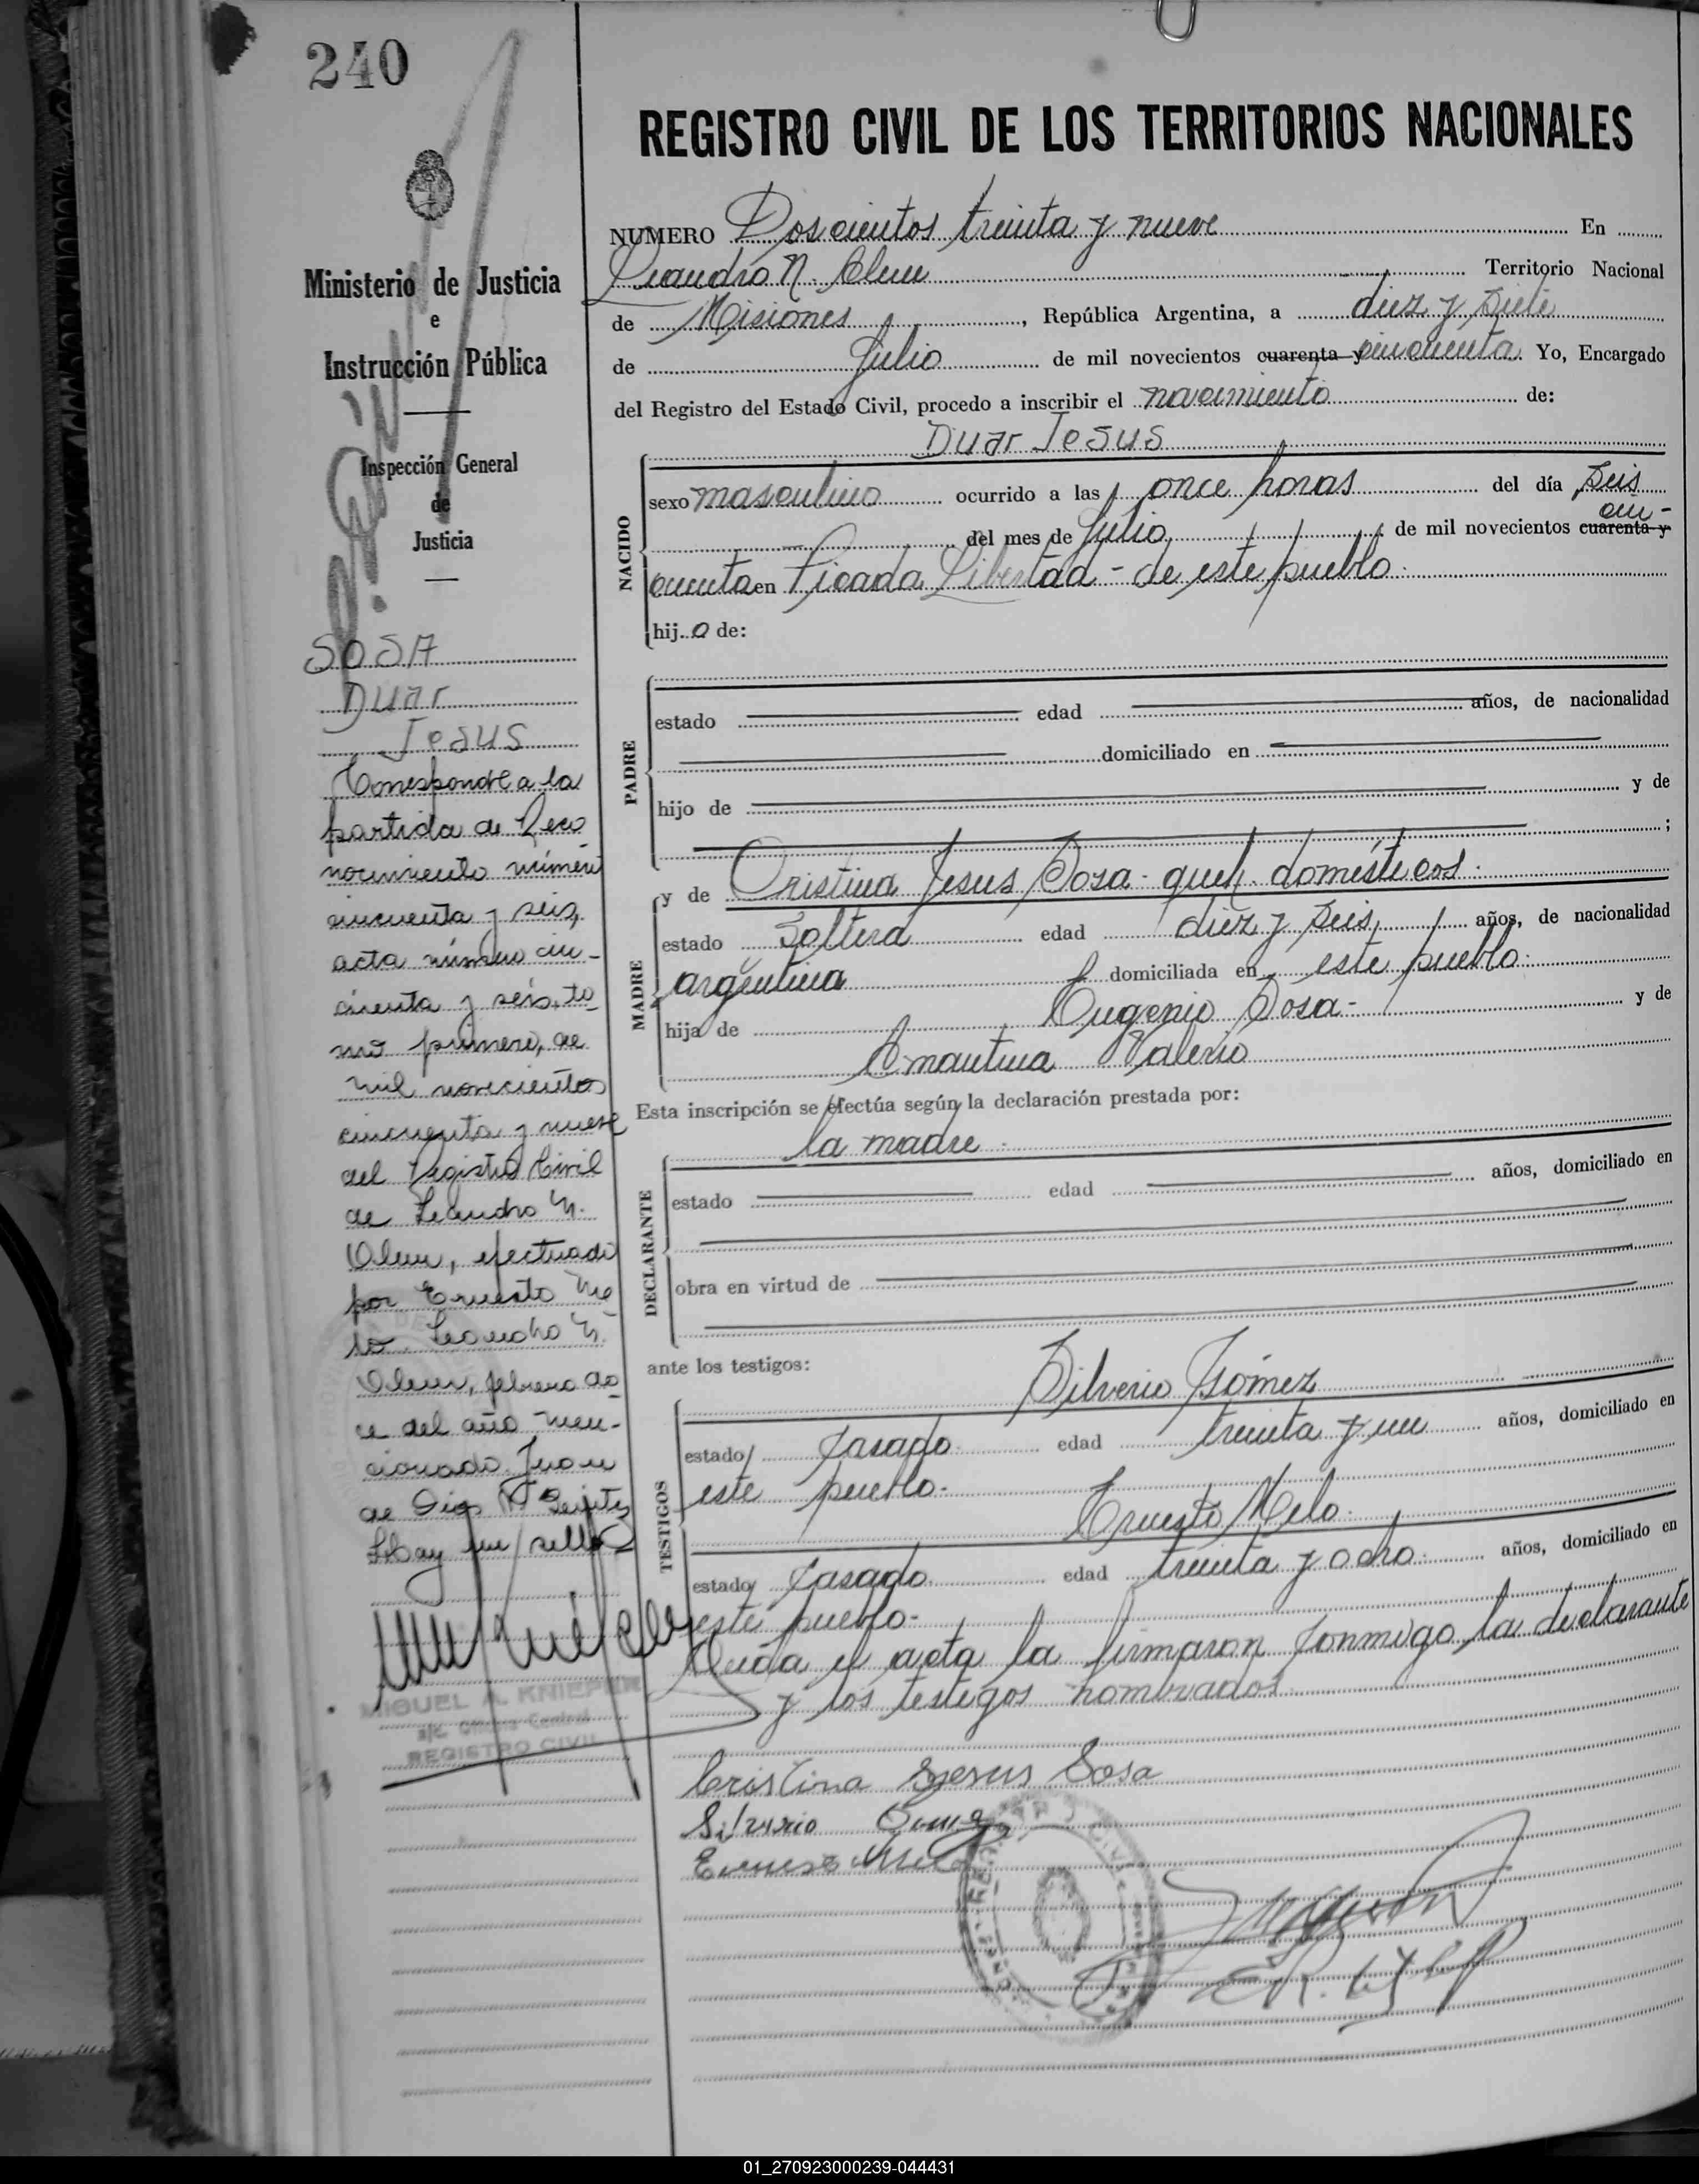 240
Ministerio de Justicia
e
Instrucción Pública
Inspección General
de
Justicia
SOSA
Duar
Jesus
Corresponde a la
partida de Reco
nocimiento número
cincuenta y seis,
acta número cin-
cuenta y seis, to
mo primero, de
mil novecientos
cincuenta y nueve
del Registro Civil
de Leandro N.
Alem, efectuado
por Ernesto Me
lo. Leandro N.
Alem, febrero do
ce del año men-
cionado. Juan
de Dios
Hay un sello
MIGUEL A. KNIEPER
a/c. Oficina Central
REGISTRO CIVIL
REGISTRO CIVIL DE LOS TERRITORIOS NACIONALES
NUMERO Doscientos treinta y nueve En
Leandro N. Alem Territorio Nacional
de Misiones, República Argentina, a diez y siete
de Julio de mil novecientos cuarenta y cincuenta. Yo, Encargado
del Registro del Estado Civil, procedo a inscribir el nacimiento de:
Duar Jesus
NACIDO
sexo masculino ocurrido a las once horas del día seis
del mes de Julio de mil novecientos cuarenta y cin-
cuenta en Picada Libertad - de este pueblo.
hijo de:
PADRE
estado edad años, de nacionalidad
domiciliado en
hijo de y de
;
MADRE
y de Cristina Jesus Sosa - queh. domésticos.
estado Soltera edad diez y seis años, de nacionalidad
argentina domiciliada en este pueblo.
hija de Eugenio Sosa - y de
Amantina Valerio
Esta inscripción se efectúa según la declaración prestada por:
la madre.
DECLARANTE
estado edad años, domiciliado en
obra en virtud de
ante los testigos:
TESTIGOS
Silverio Gómez
estado casado edad treinta y un años, domiciliado en
este pueblo.
Ernesto Melo.
estado casado edad treinta y ocho años, domiciliado en
este pueblo.
Leída el acta la firmaron conmigo la declarante
y los testigos nombrados.
Cristina Jesus Sosa
Silverio Gomez
Ernesto Melo
01_270923000239-044431